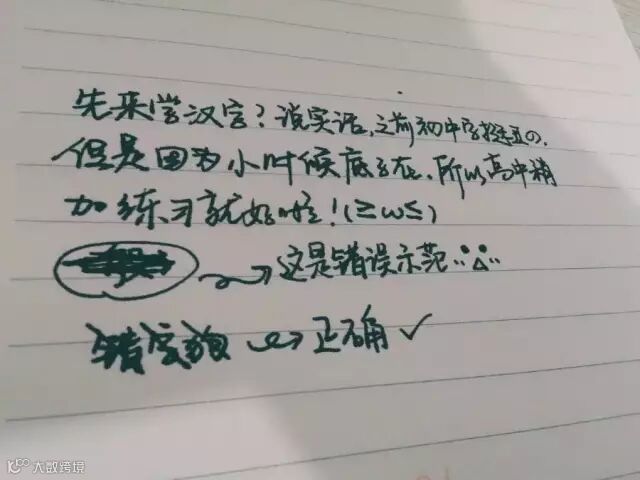 先来学汉字?说实话,之前初中字挺丑の.
但是因为小时候底子在,所以高中稍
加练习就好啦!(≥w≤)
→这是错误示范
错 → 正确 ✓
大数跨境